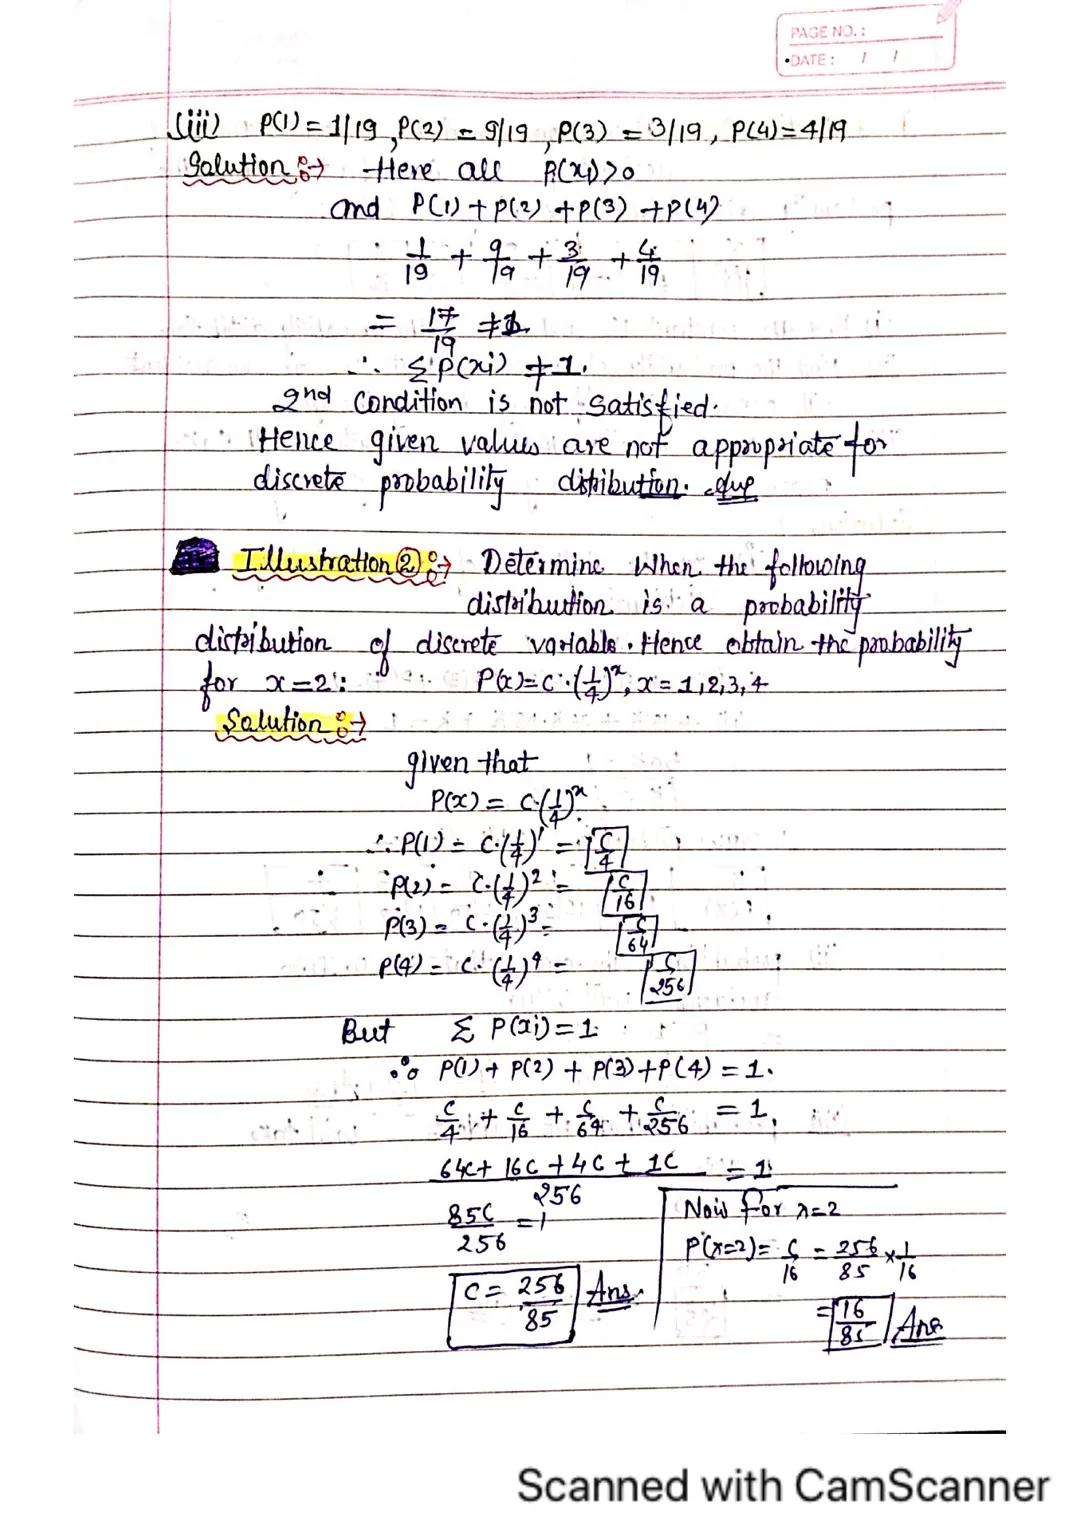 PAGE NO.:
DATE: / /
(iii) P(1) = 1/19, P(2) = 9/19, P(3) = 3/19, P(4) = 4/19
Solution :→ Here all P(xi) > 0
and P(1) + P(2) + P(3) + P(4)
1/19 + 9/19 + 3/19 + 4/19
= 17/19 ≠ 1.
∴ Σ P(xi) ≠ 1.
2nd condition is not satisfied.
Hence given values are not appropriate for
discrete probability distribution.
Illustration ② :→ Determine when the following
distribution is a probability
distribution of discrete variable. Hence obtain the probability
for x=2: P(x) = C·(1/4)^x, x = 1,2,3,4
Solution :→
given that
P(x) = C·(1/4)^x.
∴ P(1) = C·(1/4)^1 = C/4
P(2) = C·(1/4)^2 = C/16
P(3) = C·(1/4)^3 = C/64
P(4) = C·(1/4)^4 = C/256
But Σ P(xi) = 1
∴ P(1) + P(2) + P(3) + P(4) = 1.
C/4 + C/16 + C/64 + C/256 = 1,
64C + 16C + 4C + 1C / 256 = 1
85C/256 = 1
C = 256/85 Ans.
Now for x=2
P(x=2) = C/16 = 256/85 × 1/16
= 16/85 Ans
Scanned with CamScanner